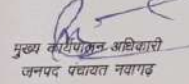 मुख्य कार्यपालन अधिकारी
जनपद पंचायत नवागढ़